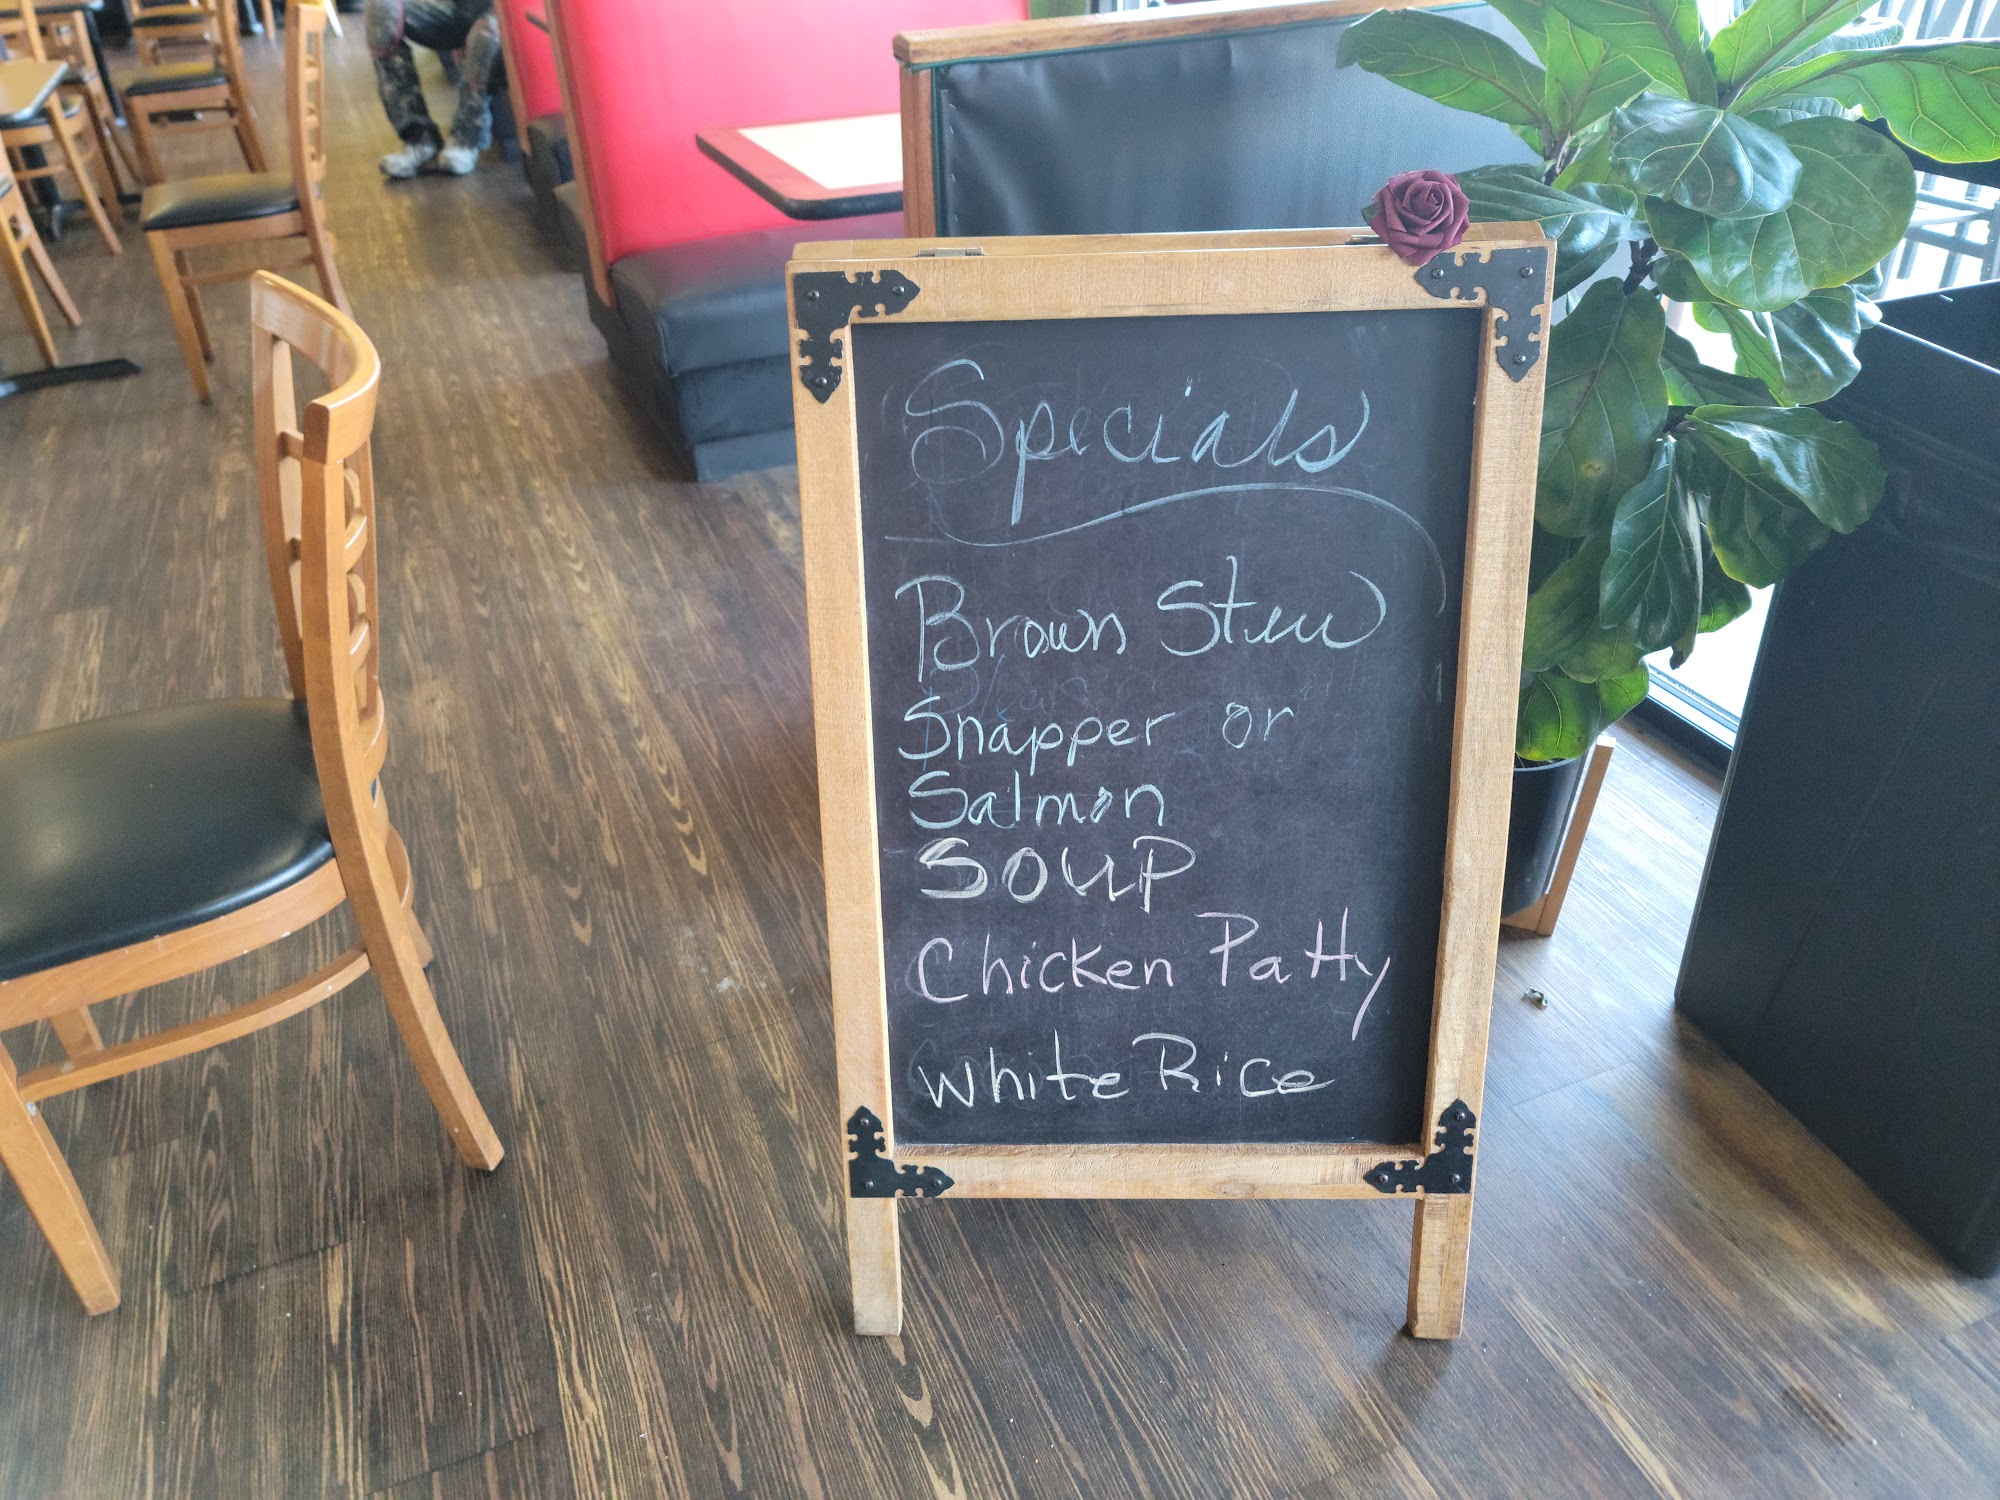 Specials
Brown Stew
Snapper or
Salmon
SOUP
Chicken Patty
White Rice